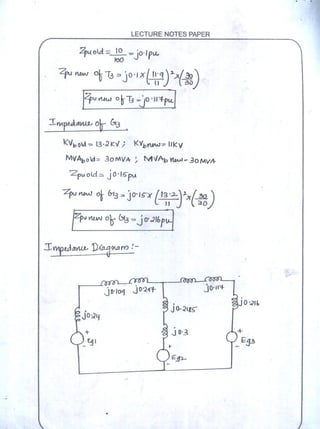 LECTURE NOTES PAPER
Zpu old = 10/100 = j0.1pu
Zpu new of T3 = j0.1 x (11.9/11)² x (30/30)
Zpu new of T3 = j0.117pu
Impedance of G3
KVb,old = 13.2KV ; KVb,new = 11KV
MVAb,old = 30MVA ; MVAb new = 30MVA
Zpu old = j0.15pu
Zpu new of G3 = j0.15 x (13.2/11)² x (30/30)
Zpu new of G3 = j0.216pu
Impedance Diagram :-
j0.109 j0.247 j0.117
j0.24 j0.245 j0.216
j0.3
+ + +
Eg1 Eg2 Eg3
- - -